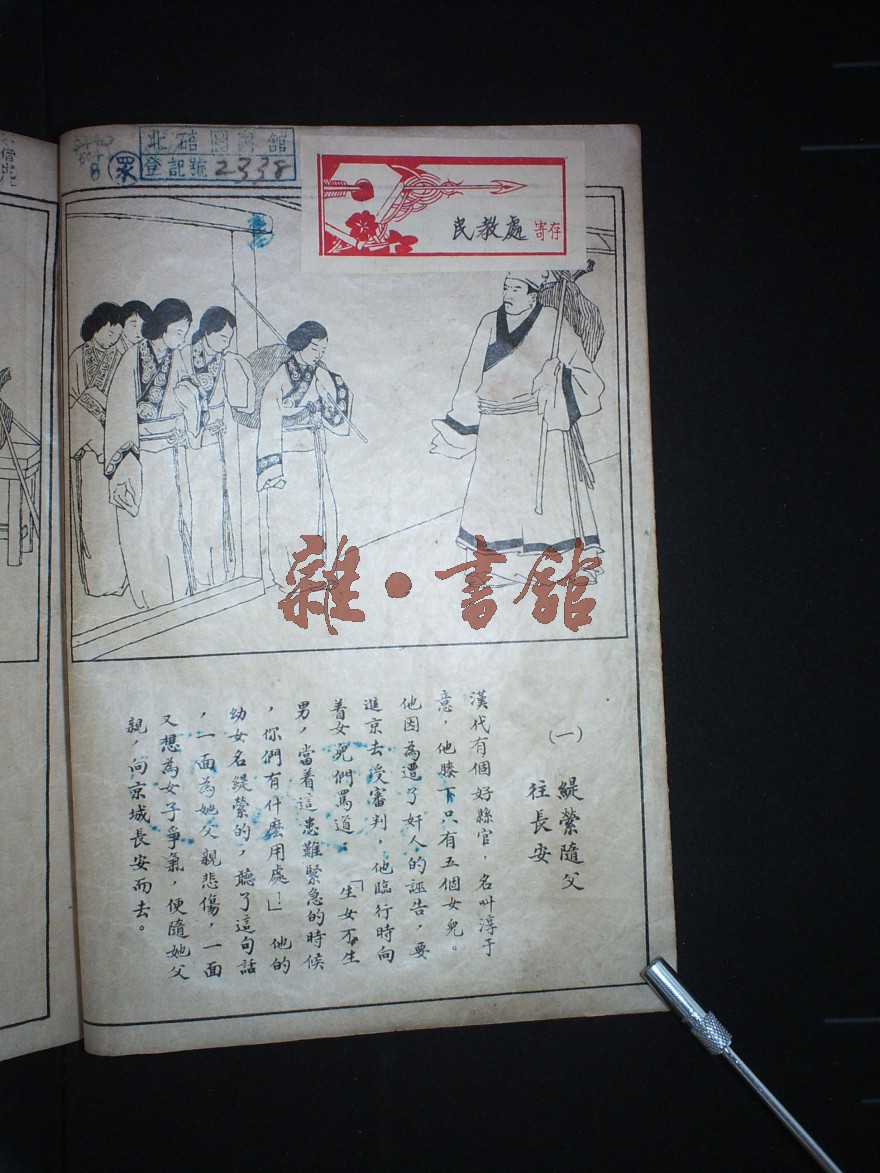 北碚圖書館
登記號 2338
眾
民教處 寄存
雜·書館
(一) 緹縈隨父
往長安
漢代有個好縣官,名叫淳于
意,他膝下只有五個女兒。
他因為遭了奸人的誣告,要
進京去受審判,他臨行時向
着女兒們罵道:「生女不生
男,當着這患難緊急的時候
,你們有什麼用處!」他的
幼女名緹縈的,聽了這句話
,一面為她父親悲傷,一面
又想為女子爭氣,便隨她父
親,向京城長安而去。